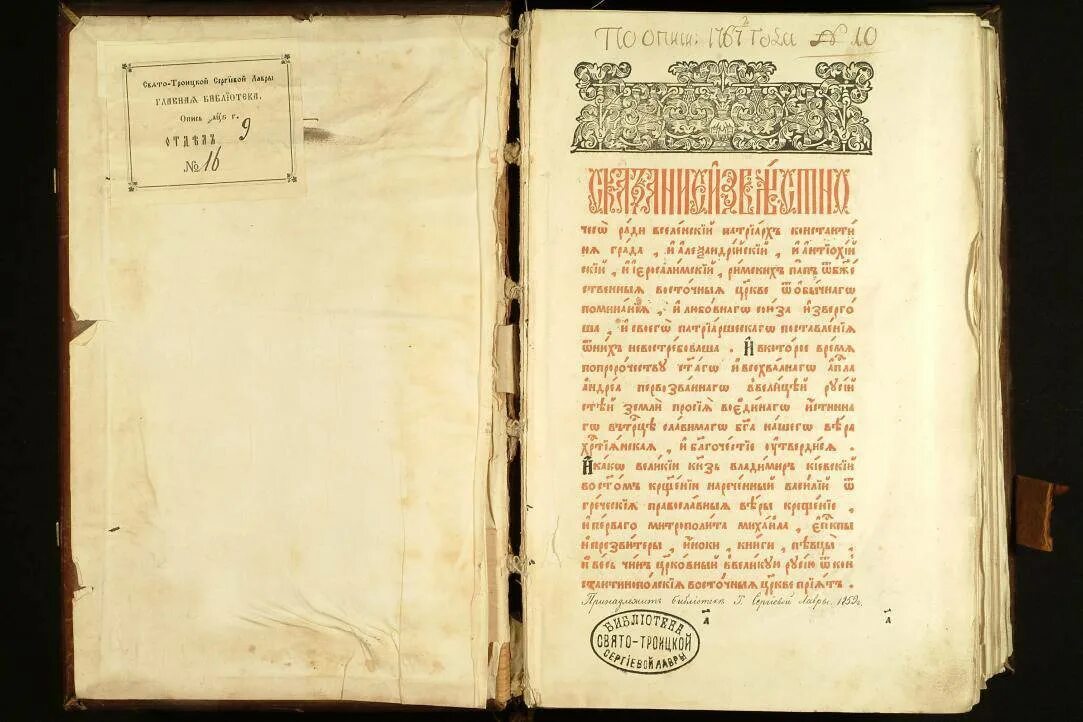 Свято-Троицкой Сергіевой Лавры
ГЛАВНАЯ БИБЛІОТЕКА.
Опись г.
ОТДѢЛЪ 9
№ 16
По описи: 1767 года № 10
2
СКАЗАНИЕ ИЗВѢСТНО
чесѡ ра́ди вселе́нскїй патрїа́рхъ константи́
нѧ гра́да , и҆ а҆леѯандрі́йскїй , и҆ а҆нтїохі́й
скїй , и҆ і҆еросали́мскїй , ри́мскихъ па́пъ ѿ бж҃е
ственныѧ восто́чныѧ цр҃кве ѿ ѻбы́чнагѡ
помина́нїѧ , и҆ любо́внагѡ сою́за и҆зверго́
ша , и҆ своегѡ̀ патрїа́ршескагѡ поставле́нїѧ
ѿ ни́хъ невостре́боваша . И҆ в кото́рое вре́мѧ
по проро́честву ст҃а́гѡ и҆ всехва́лнагѡ а҆пⷭ҇ла
а҆ндре́а первозва́ннагѡ в вели́цѣй русі́й
стѣ́й землѝ просїѧ̀ во є҆ди́нагѡ и҆́стинна
гѡ в трⷪ҇цѣ сла́вимагѡ бг҃а на́шегѡ вѣ́ра
хрⷭ҇тїѧ́нская , и҆ бл҃гоче́стїе ᲂу҆тверди́сѧ .
И҆ ка́кѡ вели́кїи кн҃зь влади́миръ кі́евскїй
во ст҃о́мъ крⷳ҇ще́нїи нарече́нный васи́лїй ѿ
гре́ческїѧ правосла́вныѧ вѣ́ры крⷳ҇ще́нїе ,
и҆ пе́рваго митрополи́та михаи́ла , є҆пⷭ҇кпы
и҆ презви́теры , и҆́ноки , кни́ги , пѣвцы̀ ,
и҆ ве́сь чи́нъ цр҃ко́вный в вели́кую русі́ю ѿ кон
стантинопо́лскїѧ восто́чныѧ цр҃кве прїѧ́тъ .
Принадлежитъ библіотекѣ Т. Сергіевой Лавры. 1859 г.
БИБЛІОТЕКА
СВЯТО-ТРОИЦКОЙ
СЕРГІЕВОЙ ЛАВРЫ